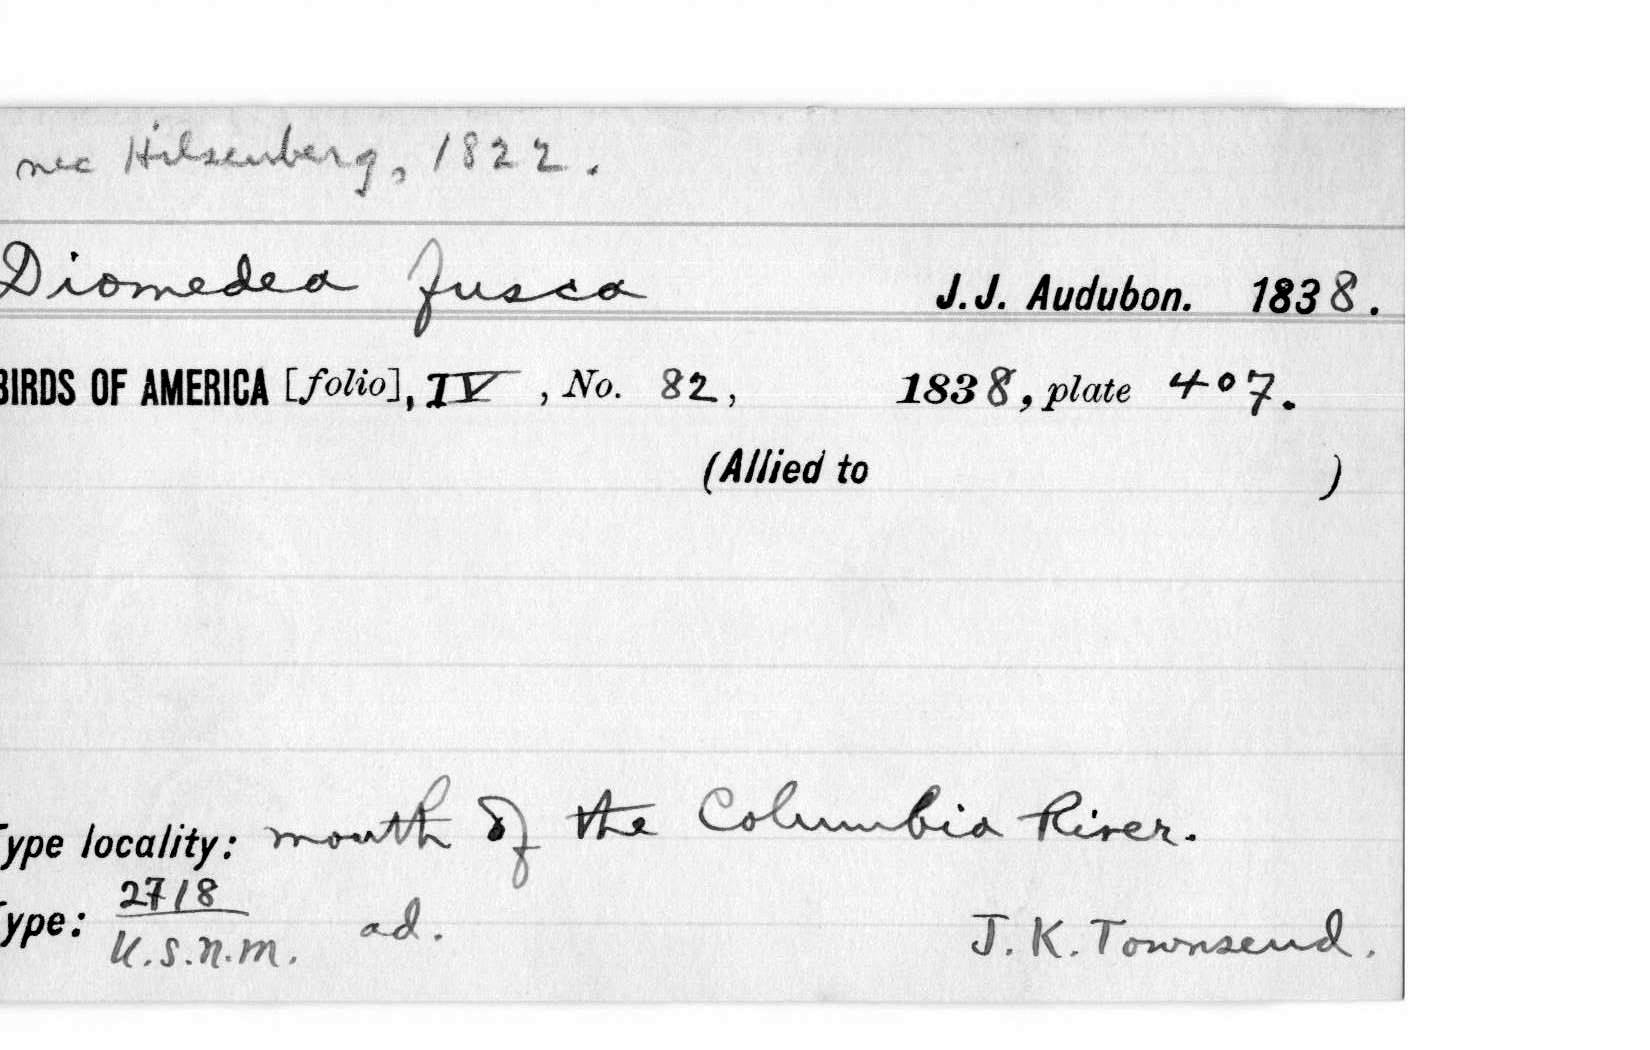 nec Hilsenberg, 1822.
Diomedea fusca J.J. Audubon. 1838.
BIRDS OF AMERICA [folio], IV, No. 82, 1838, plate 407.
(Allied to )
Type locality: mouth of the Columbia River.
Type: 2718 ad. J.K. Townsend.
U.S.N.M.